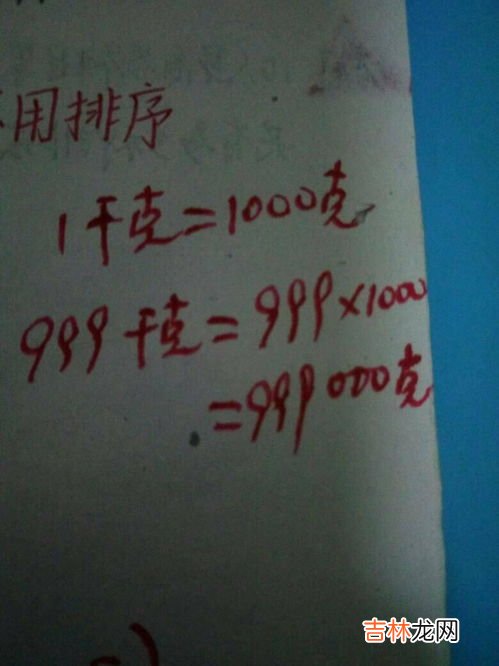 用排序
1千克=1000克
999千克=999×1000
=999000克
吉林龙网